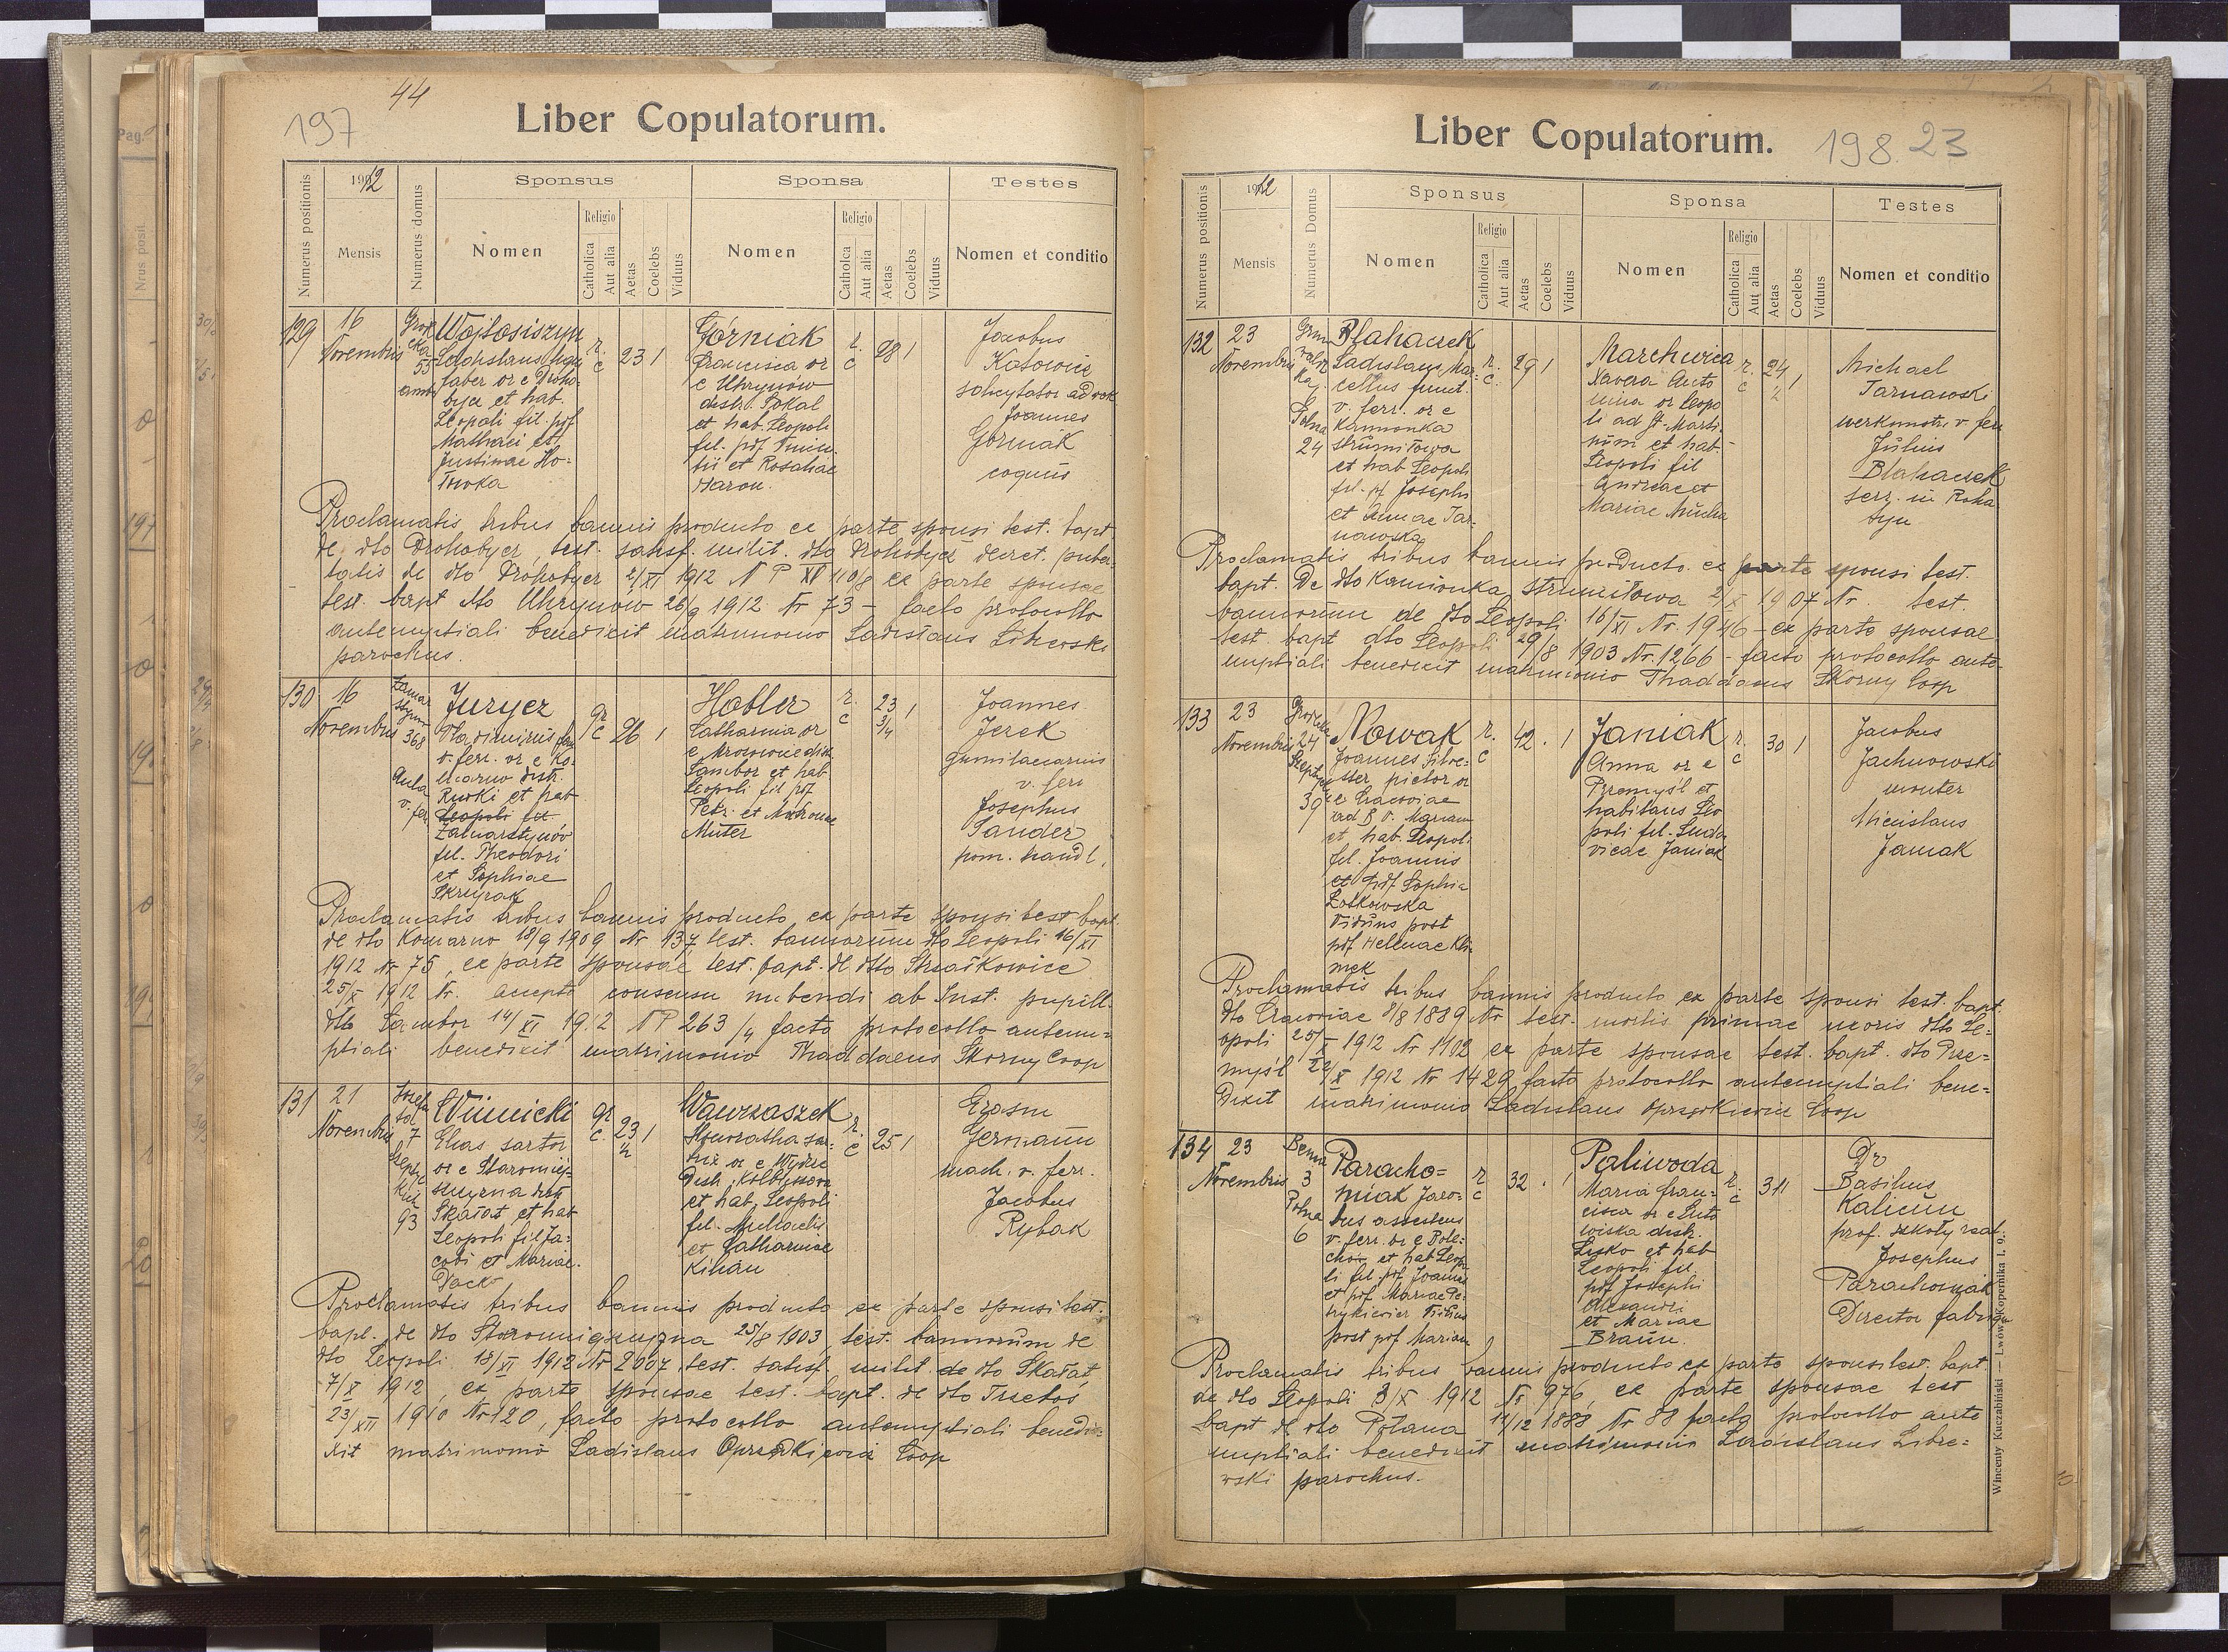 44
197
Liber Copulatorum.
Numerus positionis
1912
Mensis
Numerus domus
Sponsus
Nomen
Religio
Catholica
Aut alia
Aetas
Coelebs
Viduus
Sponsa
Nomen
Religio
Catholica
Aut alia
Aetas
Coelebs
Viduus
Testes
Nomen et conditio
129
16
Novembris
55
Wojtosiszyn
Ladislaus
faber or e Droho-
bycz et hab.
Leopoli fil. pdf
Mathaei et
Justinae Ho-
r. c
23 1
Górniak
Francisca or
e Uhrynów
distr. Sokal
et hab. Leopoli
fil. pdf
et Rosaliae
Baron
r. c
28 1
Jacobus
Kotowicz
Joannes
Górniak
coquus
Proclamatis tribus bannis producto ex parte sponsi test. bapt
de dto Drohobycz, test. satisf. milit. dto Drohobycz decret. puber
tatis de dto Drohobycz 2/XI 1912 N P XV 110/8 ex parte sponsae
test. bapt dto Uhrynów 26/9 1912 Nr 73 – facto protocollo
antenuptiali benedixit matrimonio Ladislaus Librewski
parochus.
130
16
Novembris
368
Jurycz
v. ferr. or e Ko-
marno distr.
Rudki et hab
Leopoli fil.
Zamarstynów
fil. Theodori
et Sophiae
gr c
26 1
Hobler
Catharina or
Sambor et hab.
Leopoli fil pdf
Petri et
Muter
r. c
23 3/4 1
Joannes
Jerek
v. ferr
Josephus
Sander
pom. handl.
Proclamatis tribus bannis producto, ex parte sponsi test bapt.
de dto Komarno 18/9 1909 Nr 137 test. bannorum dto Leopoli 16/XI
1912 Nr 75, ex parte sponsae test. bapt. de dto Strzałkowice
25/X 1912 Nr. accepto consensu nubendi ab Inst. pupill.
dto Sambor 14/XI 1912 N P 263/4 facto protocollo antenu-
ptiali benedixit matrimonio Thaddaeus Skorny Coop
131
21
Novembris
7
93
Winnicki
Elias sartor
or e Staromiej-
Skałat et hab
Leopoli fil Ja-
cobi et Mariae
Dack
gr c.
23 1
Wawrzaszek
Honoratha sar-
trix or e Wydrze
Distr. Kolbuszowa
et hab. Leopoli
fil. Michaelis
et Catharinae
Kilian
r. c
25 1
Erasm
Germann
mach. v. ferr.
Jacobus
Rybak
Proclamatis tribus bannis producto ex parte sponsi test.
bapt. de dto 25/8 1903, test. bannorum de
dto Leopoli 18/XI 1912 Nr 2007, test. satisf. milit. de dto Skałat,
7/X 1912, ex parte sponsae test. bapt. de dto
23/XII 1910 Nr 120, facto protocollo antenuptiali benedi-
xit matrimonio Ladislaus Oprzędkiewicz Coop
Liber Copulatorum.
198. 23
Numerus positionis
1912
Mensis
Numerus Domus
Sponsus
Nomen
Religio
Catholica
Aut alia
Aetas
Coelebs
Viduus
Sponsa
Nomen
Religio
Catholica
Aut alia
Aetas
Coelebs
Viduus
Testes
Nomen et conditio
132
23
Novembris
Polna
24
Blahaczek
Ladislaus Mar-
cellus funct.
v. ferr. or e
Kamionka
strumiłowa
et hab Leopoli
fil. pf. Josephi
et Annae Tar-
nawska
r. c.
29 1
Marchwica
Xavera Anto
nina or Leopo
li ad St. Marti-
num et hab-
Leopoli fil
Andreae et
Mariae Mucha
r. c
24 1
Michael
Tarnawski
werkmstr. v ferr
Julius
Blahaczek
in Roha
tyn
Proclamatis tribus bannis producto ex parte sponsi test.
bapt. De dto Kamionka strumiłowa 2/X 1907 Nr. test.
bannorum de dto Leopoli 16/XI Nr. 1946 – ex parte sponsae
test. bapt dto Leopoli 29/8 1903 Nr. 1266 – facto protocollo ante-
nuptiali benedixit matrimonio Thaddaeus Skorny Coop
133
23
Novembris
24
39
Nowak
Joannes Silve-
ster pictor or
e Cracoviae
ad B. V. Mariam
et hab. Leopoli
fil. Joannis
et pdf Sophia
Zotkowska
Viduus post
pdf Helenae Kli-
mek
r. c
42. 1
Janiak
Anna or e
Przemyśl et
habitans Leo
poli fil. Ludo
vicae Janiak
r. c
30 1
Jacobus
Jachnowski
monter
Micislaus
Janiak
Proclamatis tribus bannis producto ex parte sponsi test. bapt.
dto Cracoviae 8/8 1889 Nr test. mortis primae uxoris dto Le-
opoli 25/X 1912 Nr 1402 ex parte sponsae test. bapt. dto Prze-
myśl 22/X 1912 Nr 1429 facto protocollo antenuptiali bene-
dixit matrimonio Ladislaus Oprzędkiewicz Coop
134
23
Novembris
Bema
3
Polna
6
Paracho-
niak Jaro-
bus assistens
v. ferr. or e Pole-
chów et hab Leopo
li fil. pdf Joannis
et pdf Mariae Pe-
trykiewicz Viduus
post pdf Mariam
r c
32. 1
Paliwoda
Maria Fran-
cisca or e Luto
wiska distr.
Lisko et hab
Leopoli fil.
pdf Josephi
Alexandri
et Mariae
Braun.
r. c
31 1
Dr
Basilius
Kalicun
prof. szkoły real
Josephus
Parachoniak
Director fabrique
Proclamatis tribus bannis producto ex parte sponsi test. bapt.
de dto Leopoli 3/X 1912 Nr 976, ex parte sponsae test
bapt de dto Polana 11/12 1888 Nr 88 facto protocollo ante
nuptiali benedixit matrimonio Ladislaus Libre-
wski parochus.
Wincenty Kuczabiński — Lwów Kopernika l. 9.